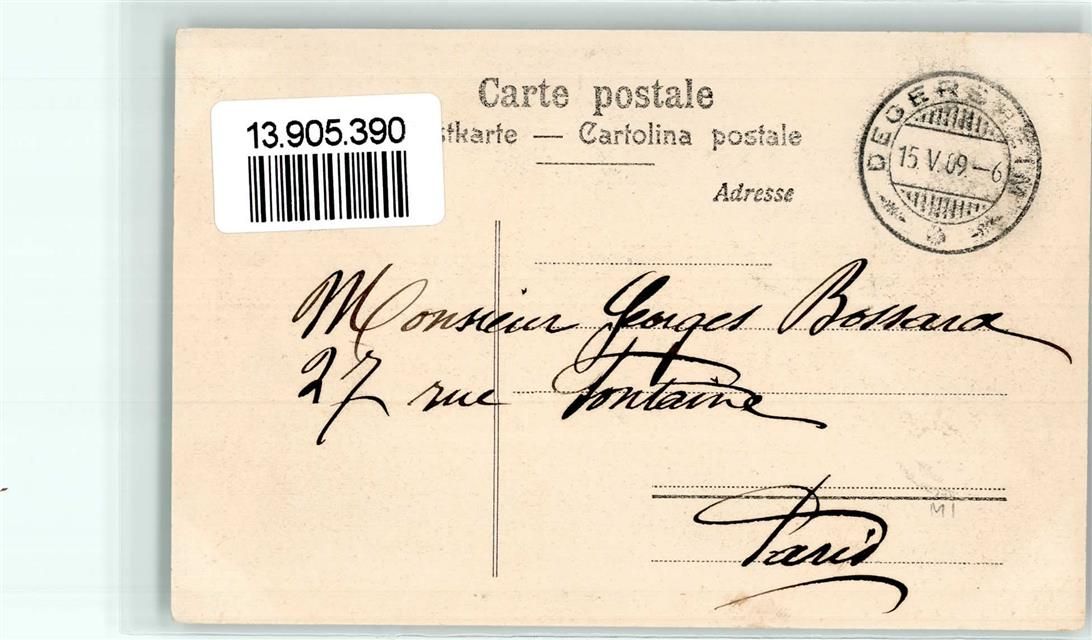 Carte postale
13.905.390
stkarte — Cartolina postale
Adresse
DEGERSHEIM
15.V.09-6
Monsieur Georges Bossard
27 rue Fontaine
Paris
MI